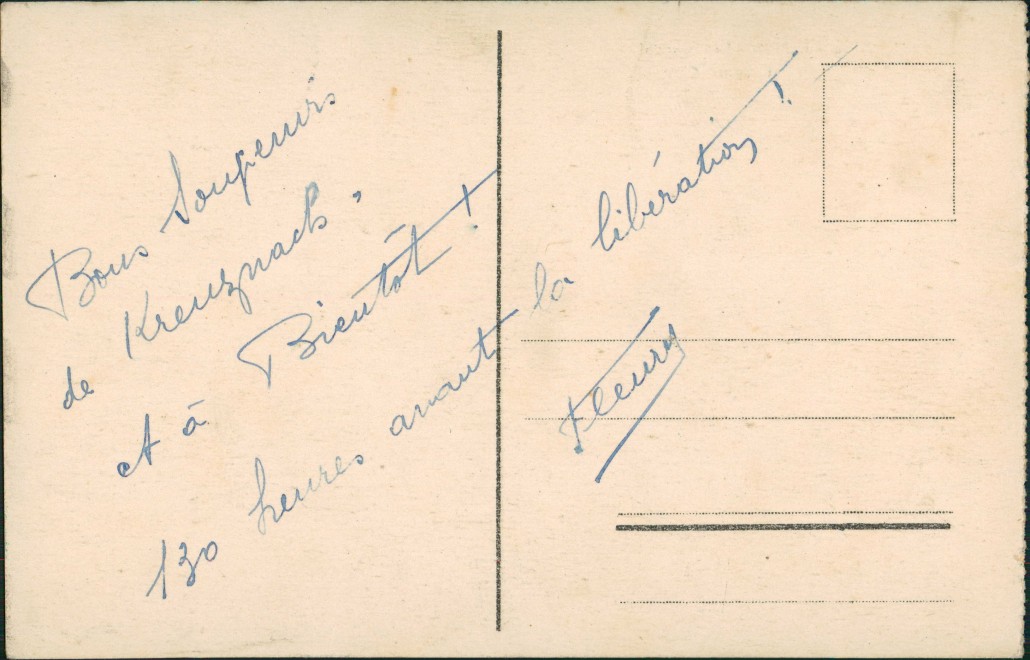 Bons Souvenirs
de Kreuznach,
et à Bientôt !
130 heures avant la libération !
Fleury